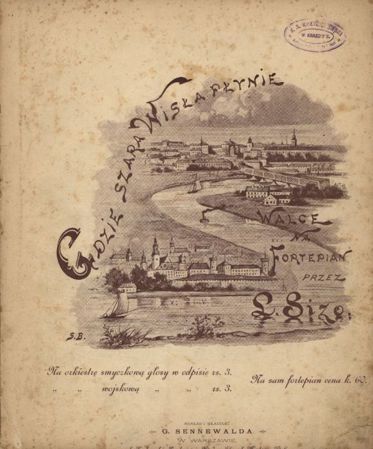 GDZIE SZARA WISŁA PŁYNIE
WALCE
NA
FORTEPIAN
PRZEZ
L. Size.
S.B.
Na orkiestrę smyczkową głosy w odpisie rs. 3.
„ „ wojskową „ „ rs. 3.
Na sam fortepian cena k. 60.
NAKŁAD I WŁASNOŚĆ
G. SENNEWALDA
W WARSZAWIE